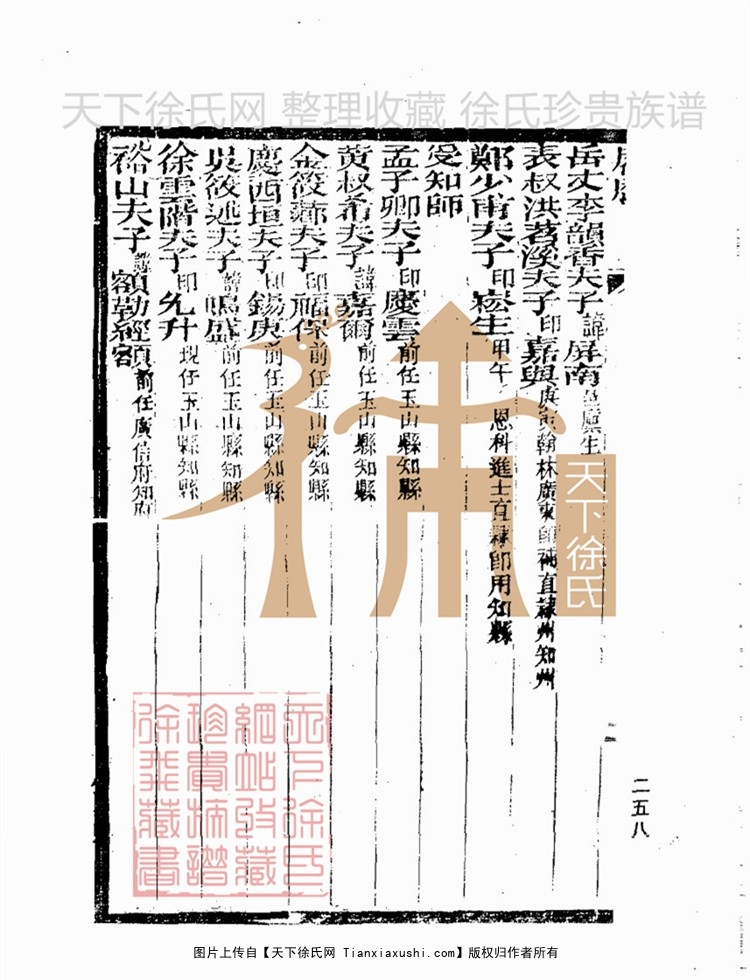 天下徐氏网 整理收藏 徐氏珍贵族谱
岳丈李韻香夫子諱屏南邑廩生
表叔洪茗溪夫子印嘉與庚寅翰林廣東即補直隸州知州
鄭少甫夫子印崧生甲午恩科進士直隸即用知縣
受知師
孟子卿夫子印慶雲前任玉山縣知縣
黄叔希夫子諱嘉爾前任玉山縣知縣
金筱䓣夫子印福保前任玉山縣知縣
慶西垣夫子印錫庚前任玉山縣知縣
吳筱述夫子諱鳴盛前任玉山縣知縣
徐雲階夫子印允升現任玉山縣知縣
裕山夫子諱額勒經額前任廣信府知府
二五八
徐
天下徐氏
天下徐氏
網站收藏
珍貴族譜
徐氏藏書
图片上传自【天下徐氏网 Tianxiaxushi.com】版权归作者所有